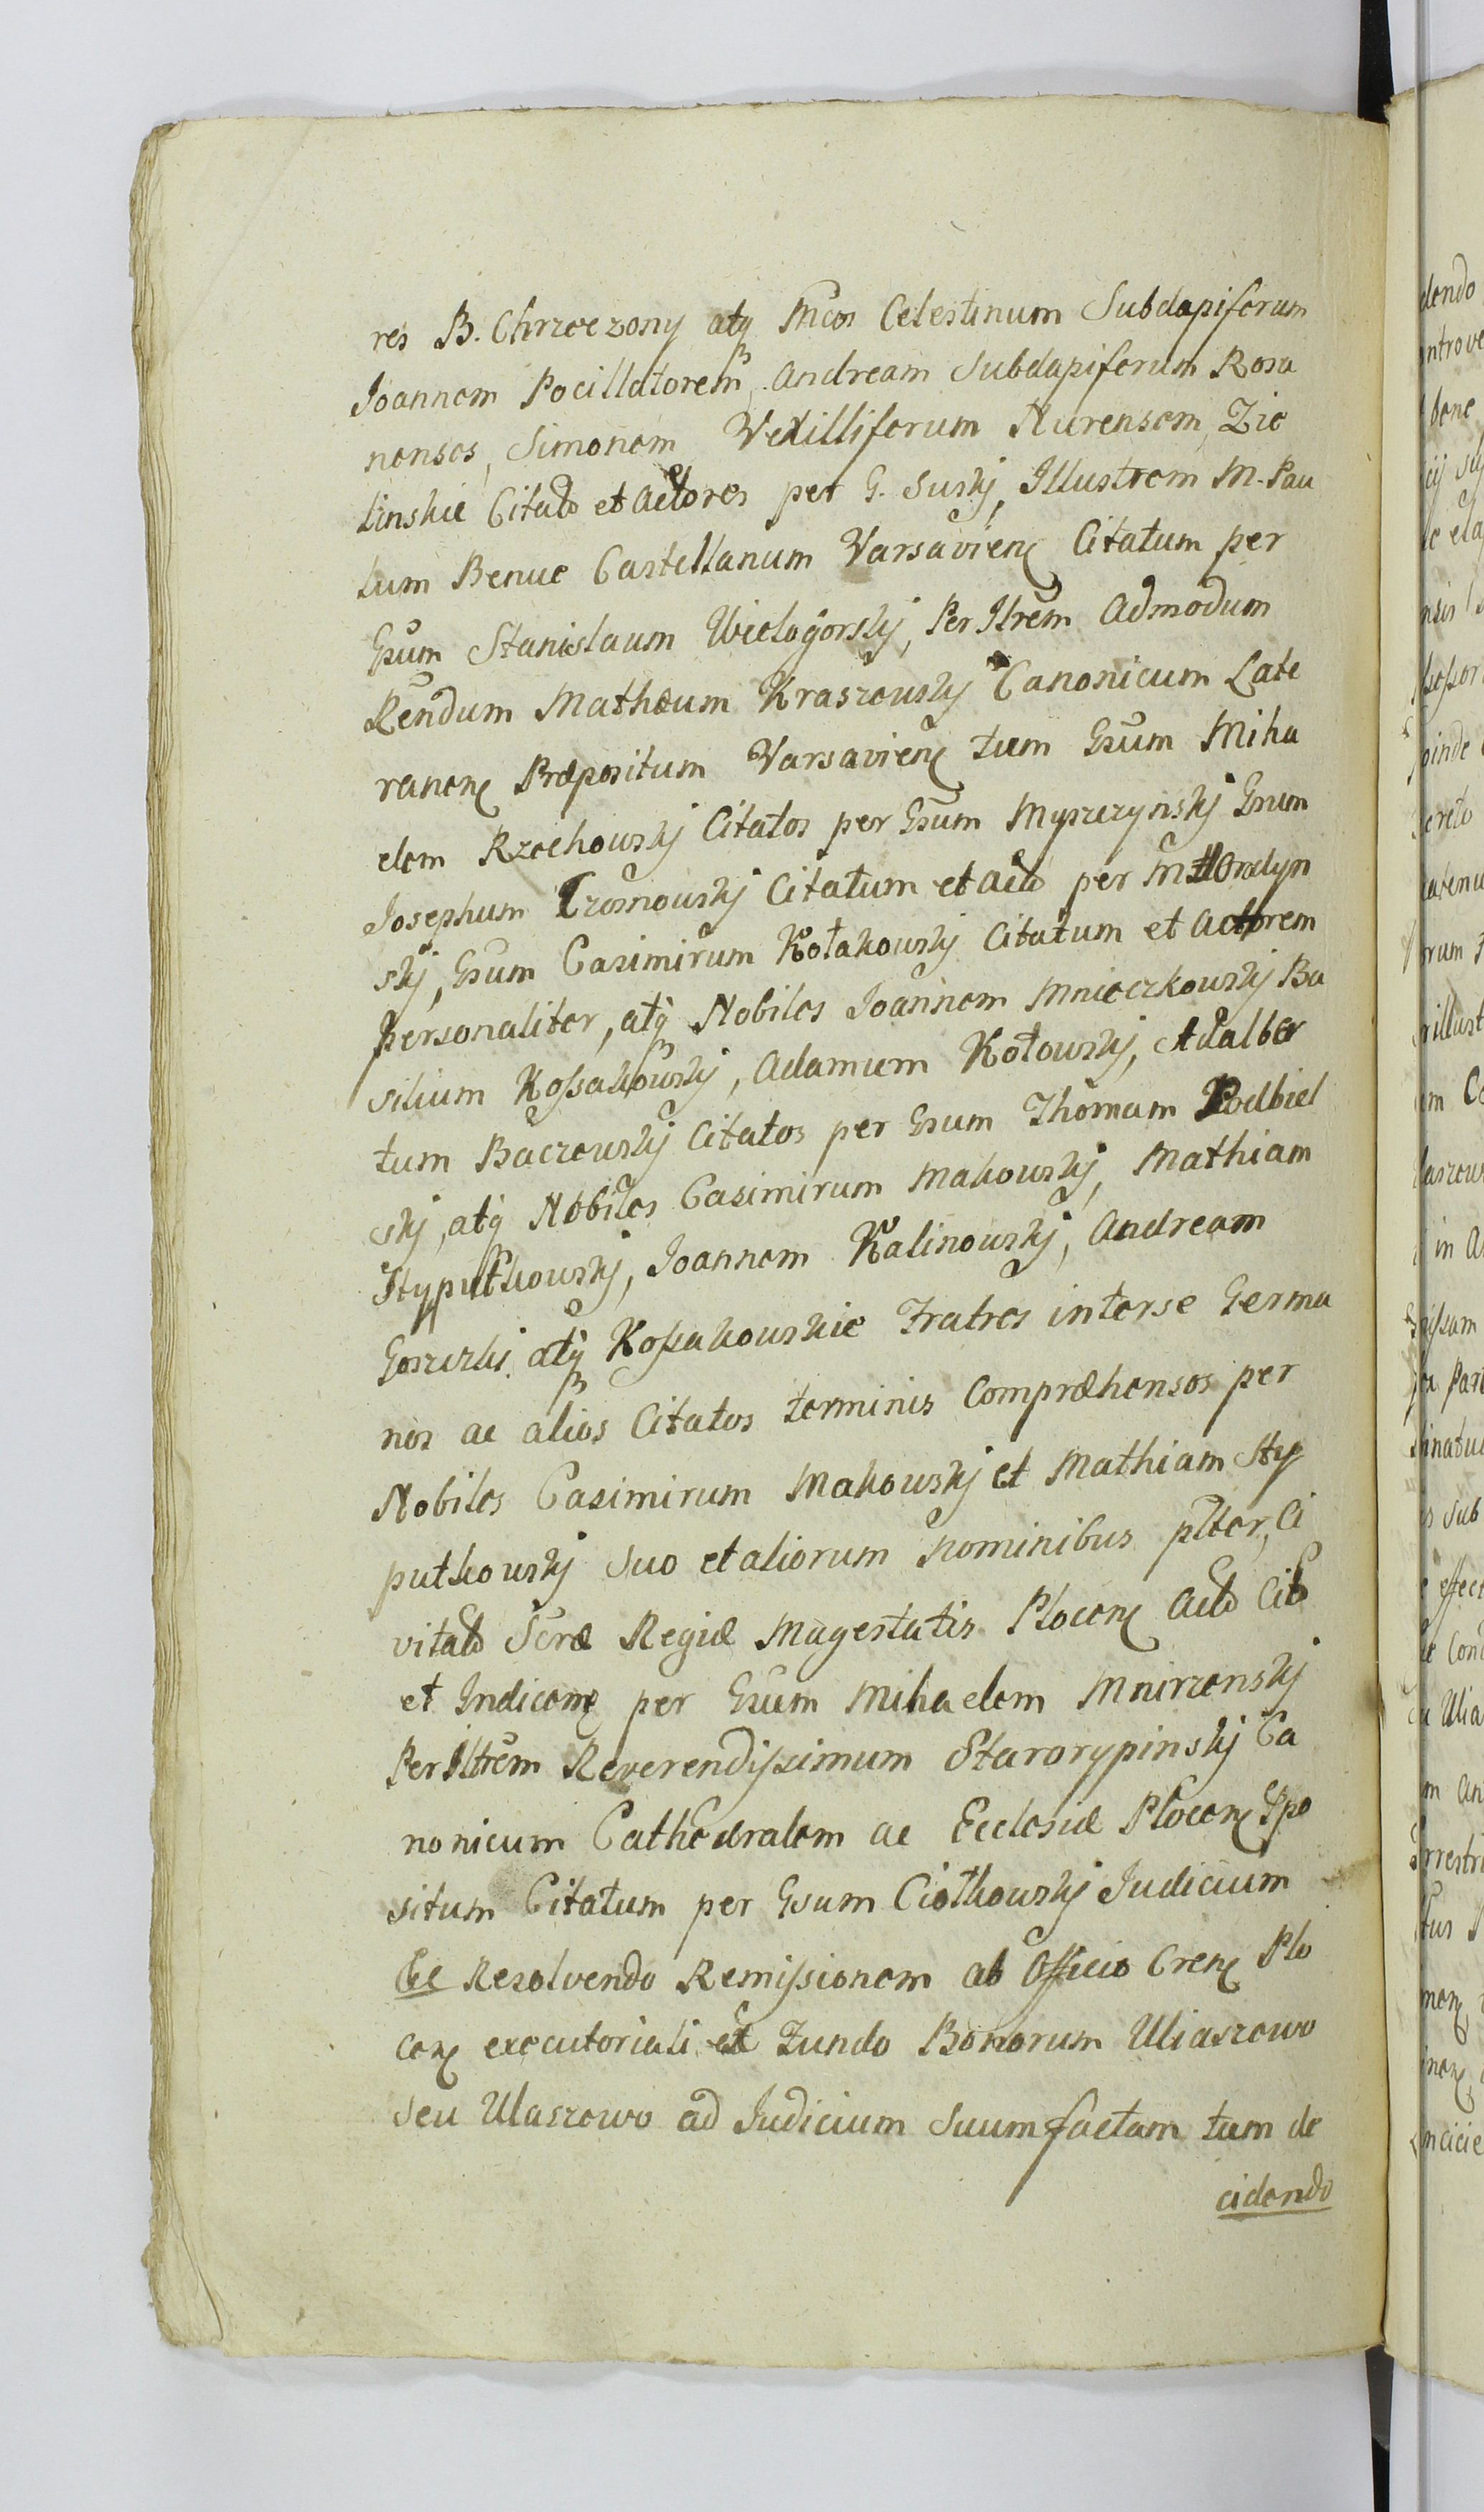 res B. Chrzczony atq Mcos Celestinum Subdapiferum
Joannem Pocillatorem, Andream Subdapiferum Roza
nenses, Simonem Vexilliferum Nurensem, Zie
linskie Citato et Actores per G. Suskj, Illustrem M. Pau
lum Benue Castellanum Varsavien Citatum per
Gsum Stanislaum Wielogorskj, Per Ilrem Admodum
Rendum Mathæum Kraszewskj Canonicum Late
ranen Præpositum Varsavien tum Gsum Miha
elem Rzechowskj Citatos per Gsum Myszczynskj Gsum
Josephum Czosnowskj Citatum et Acto per
skj, Gsum Casimirum Kołakowskj Citatum et Actorem
personaliter, atq Nobiles Joannem Mnieczkowskj Ba
silium Kossakowskj, Adamum Kołowskj, Adalber
tum Baczewskj Citatos per Gsum Thomam Podbiel
skj, atq Nobiles Casimirum Makowskj, Mathiam
Stypułkowskj, Joannem Kalinowskj, Andream
Goszczki atq Kossakowskie Fratres interse Germa
nos ac alios Citatos terminis Compræhensos per
Nobiles Casimirum Makowskj et Mathiam Sty
pułkowskj suo et aliorum nominibus plter, Ci
vitato Scræ Regiæ Magestatis Plocen Acto Cito
et Indicen per Gsum Mihaelem Mnirzenskj
Per Iltrem Reverendissimum Starorypinskj Ca
nonicum Cathedralem ac Ecclesiæ Plocen Ppo
situm Citatum per Gsum Ciołkowskj Judicium
Gle Resolvendo Remissionem ab Officio Cren Plo
cen executoriali ex Fundo Bonorum Uliaszewo
seu Ulaszewo ad Judicium Suum factam tum de
cidendo